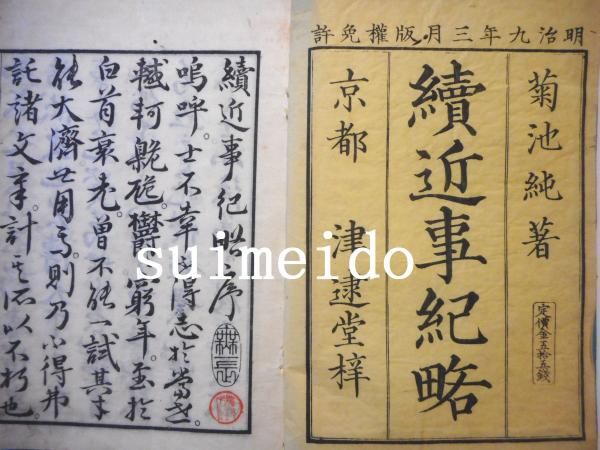 明治九年三月版權免許
菊池純著
續近事紀略
定價金五拾五錢
京都 津逮堂梓
續近事紀略序
嗚呼。士不幸不得志於當世。
轗軻䡾硊。欝窮年。至於
白首衰老。曽不能一試其才
能大濟世用焉。則乃不得弗
託諸文章。計其所以不朽也。
suimeido